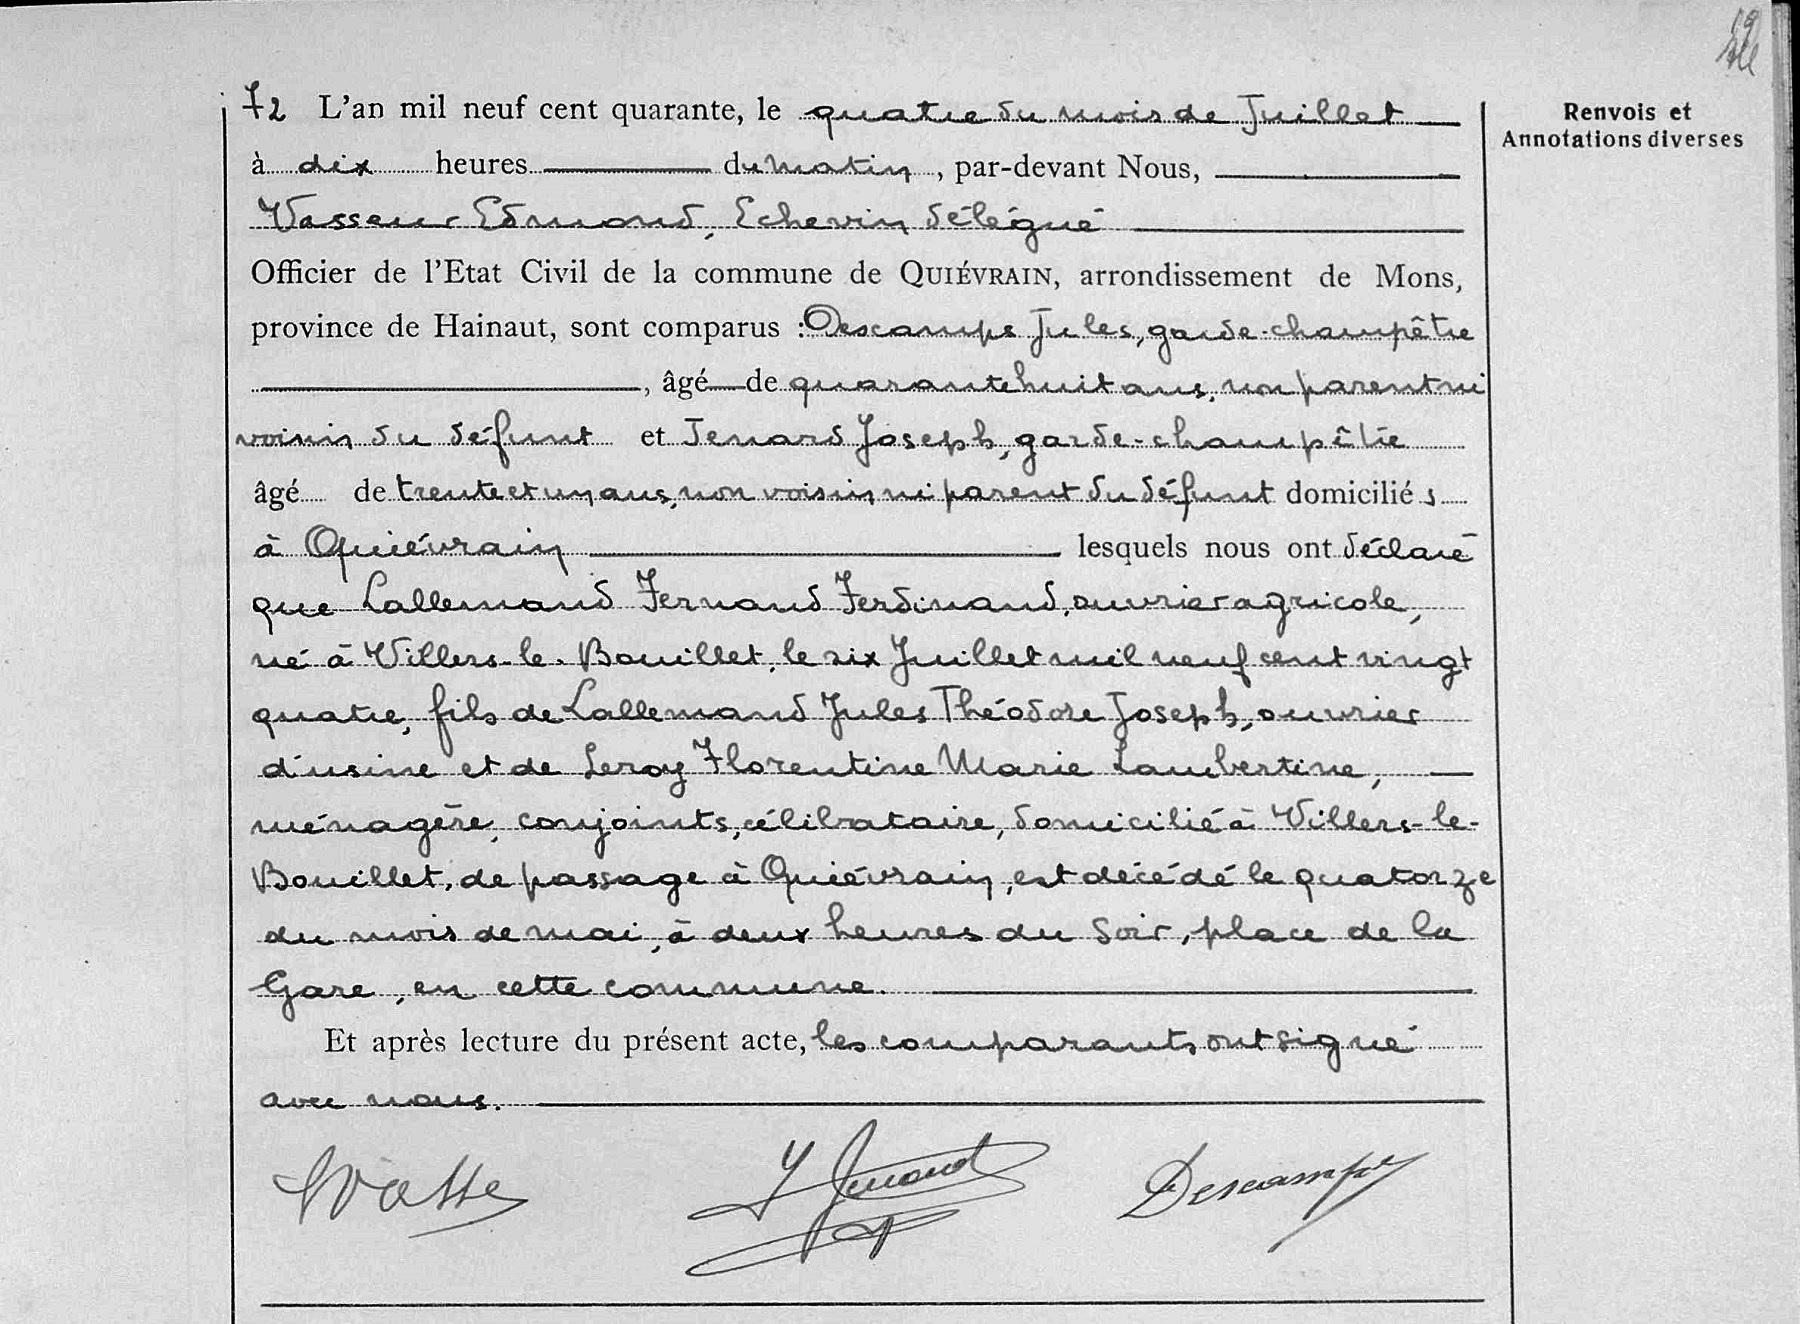 72 L'an mil neuf cent quarante, le quatre du mois de Juillet
Renvois et
Annotations diverses
à dix heures du matin, par-devant Nous,
Vasseur Edmond, Echevin délégué
Officier de l'Etat Civil de la commune de QUIÉVRAIN, arrondissement de Mons,
province de Hainaut, sont comparus : Descamps Jules, garde-champêtre
, âgé de quarante huit ans, non parent ni
voisin du défunt et Jenard Joseph, garde-champêtre
âgé de trente et un ans, non voisin ni parent du défunt domiciliés
à Quiévrain lesquels nous ont déclaré
que Lallemand Fernand Ferdinand, ouvrier agricole,
né à Villers-le-Bouillet, le six Juillet mil neuf cent vingt
quatre, fils de Lallemand Jules Théodore Joseph, ouvrier
d'usine et de Leroy Florentine Marie Lambertine,
ménagère, conjoints, célibataire, domicilié à Villers-le-
Bouillet, de passage à Quiévrain, est décédé le quatorze
du mois de mai, à deux heures du soir, place de la
Gare, en cette commune.
Et après lecture du présent acte, les comparants ont signé
avec nous.
J Jenard Descamps